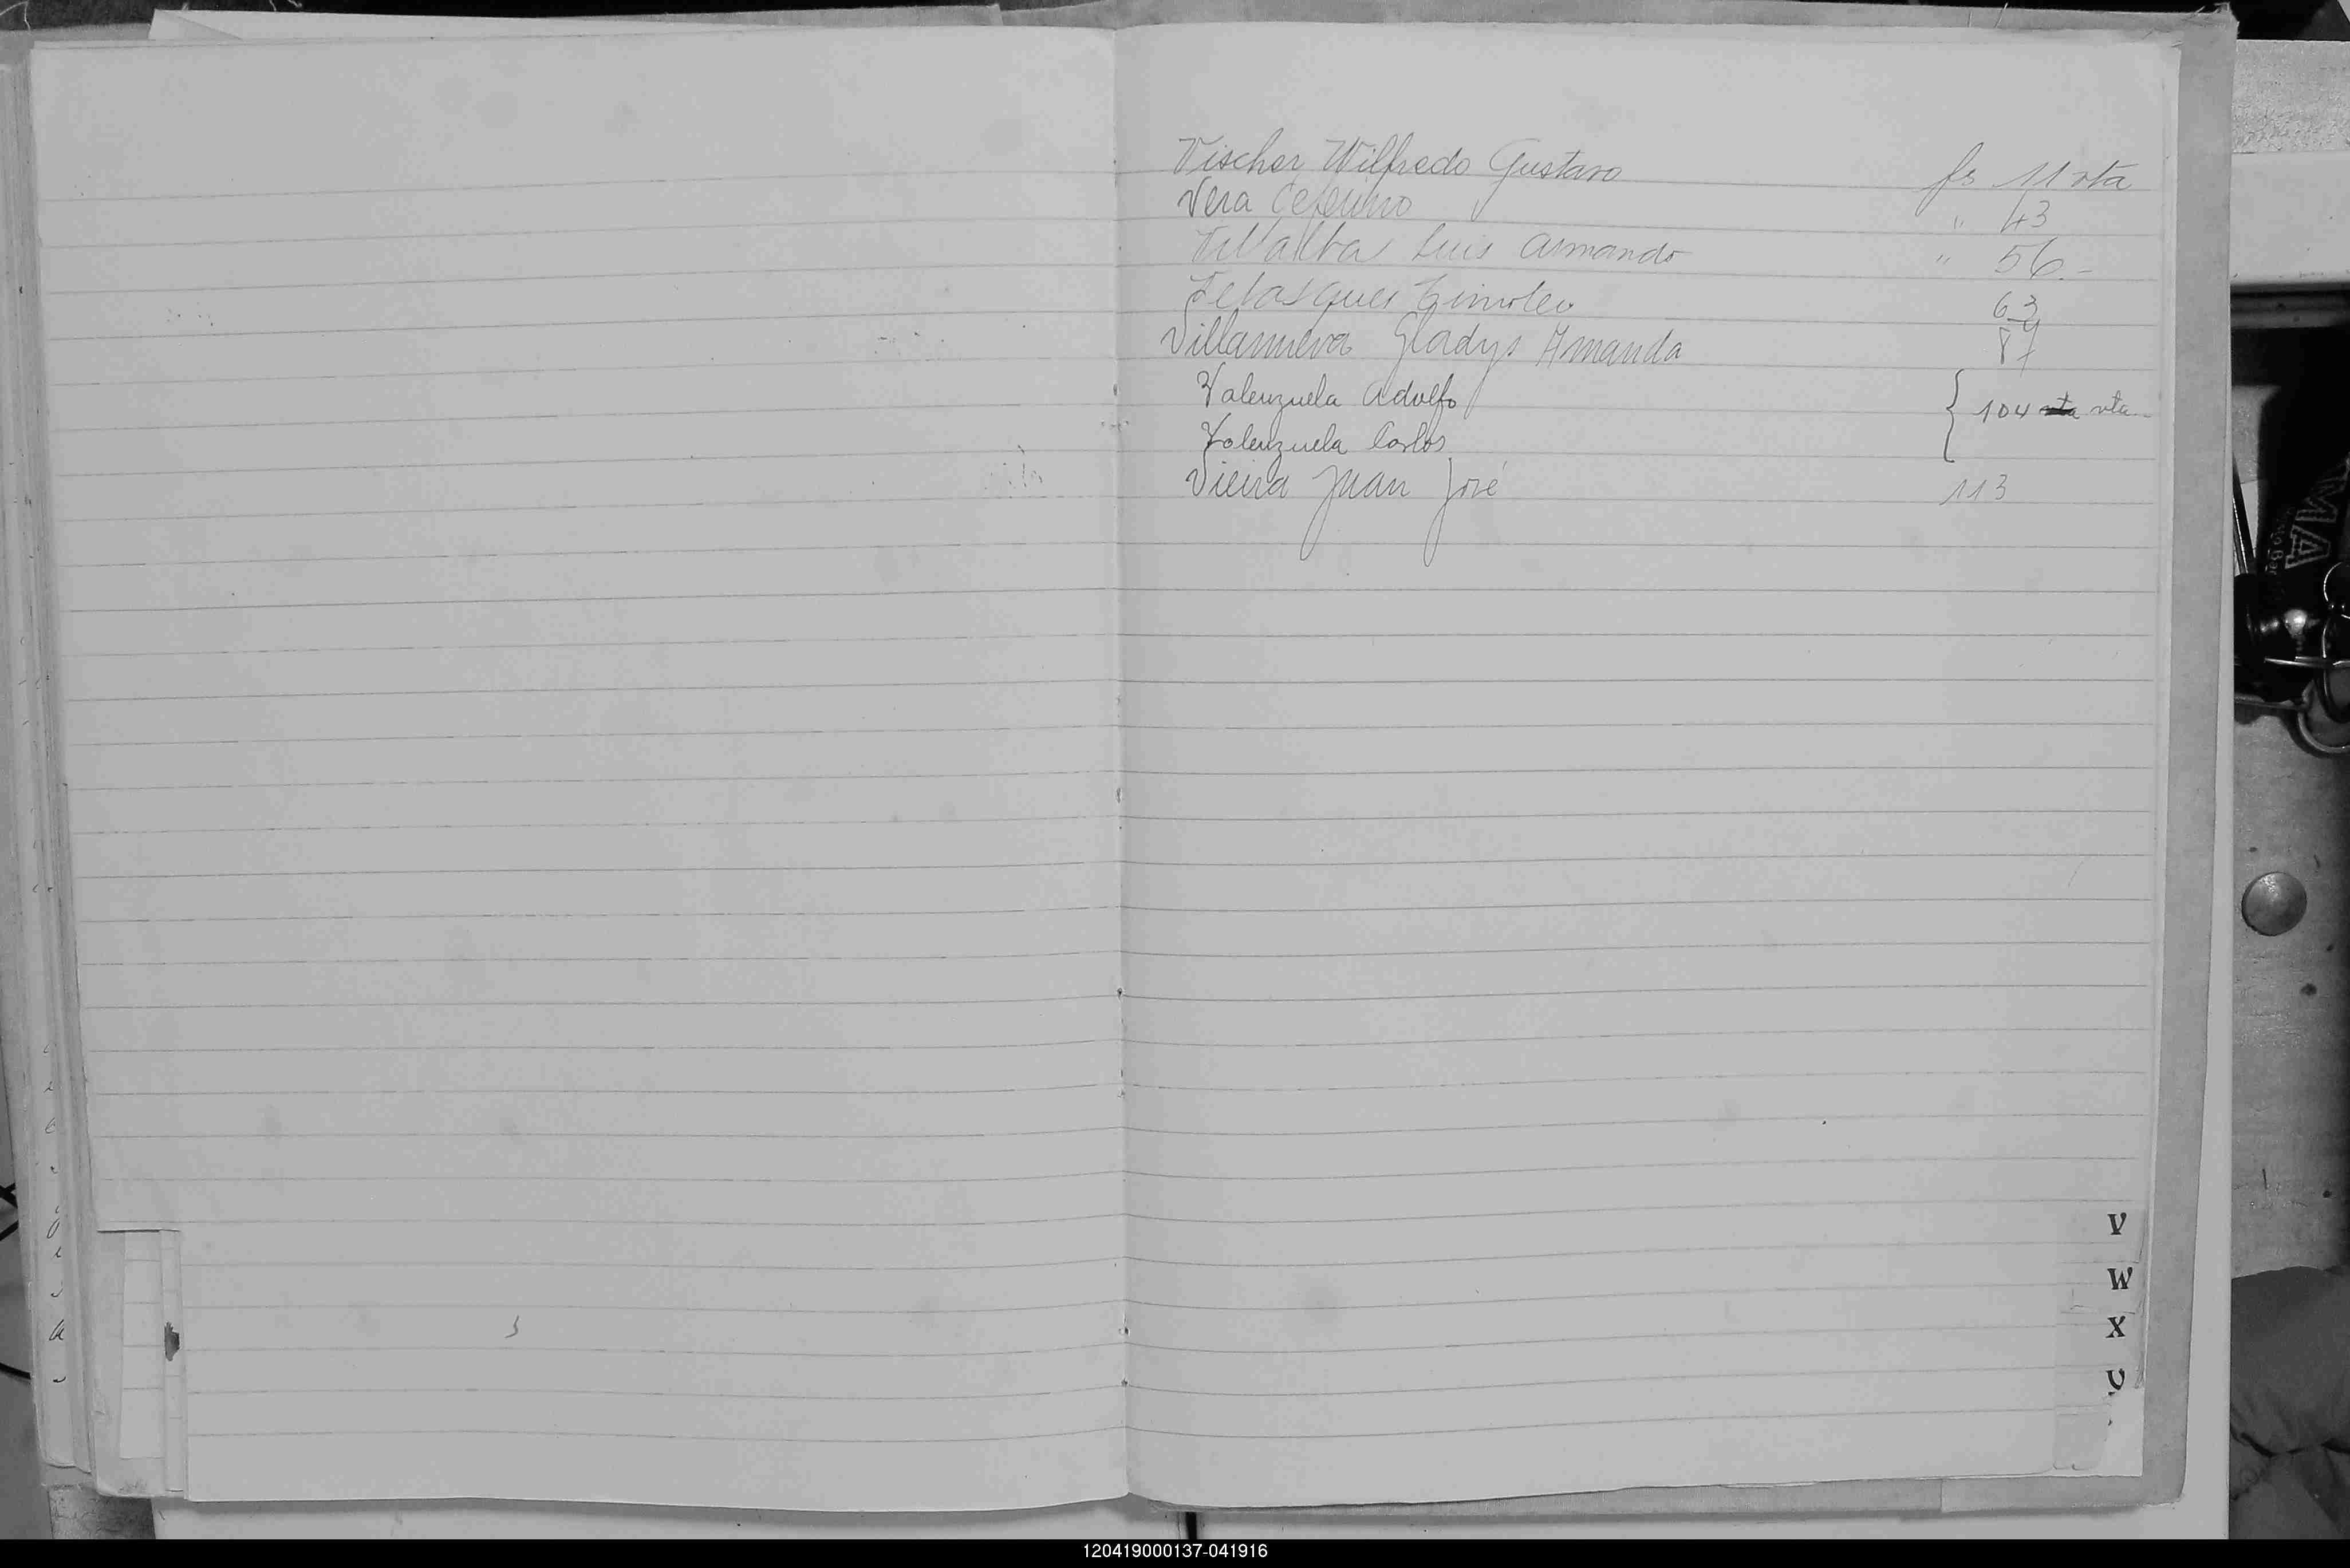 Vischer Wilfredo Gustavo fs 11 vta
Vera Ceferino " 43
Villalba Luis Armando " 56.-
Velasquez Timoteo 63
Villanueva Gladys Amanda 87
Valenzuela Adolfo { 104 vta vta
Valenzuela Carlos
Vieira Juan José 113
V
W
X
Y
120419000137-041916